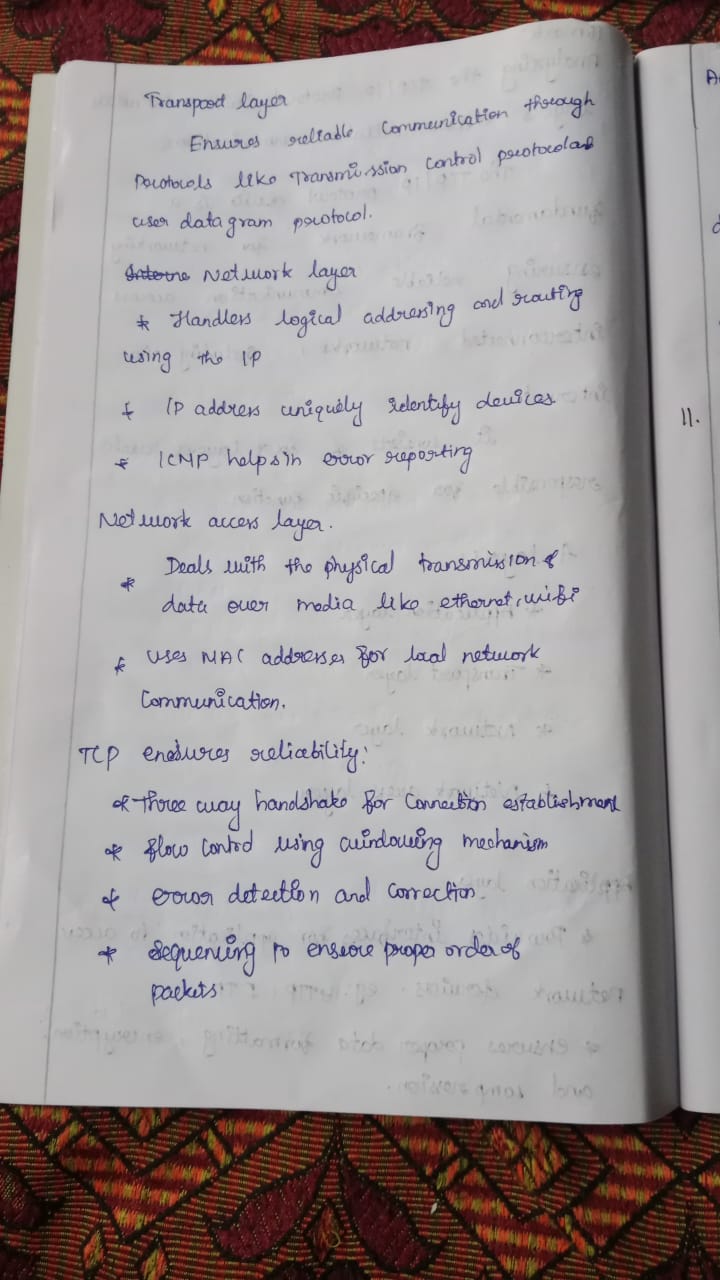 Transpoot layer
Ensures reliable Communication through
Protocols like Transmission Control protocol and
user data gram protocol.
Interne Network layer
* Handlers logical addressing and routing
using the IP
* IP address uniquely identify devices
* ICMP helps in error reporting
Network access layer.
* Deals with the physical transmission of
data over media like ethernet, wifi
* Uses MAC addresses for local network
Communication.
TCP ensures reliability:
* Three way handshake for Connection establishment
* flow control using windowing mechanism
* error detection and correction.
* Sequencing to ensure proper order of
packets.
11.